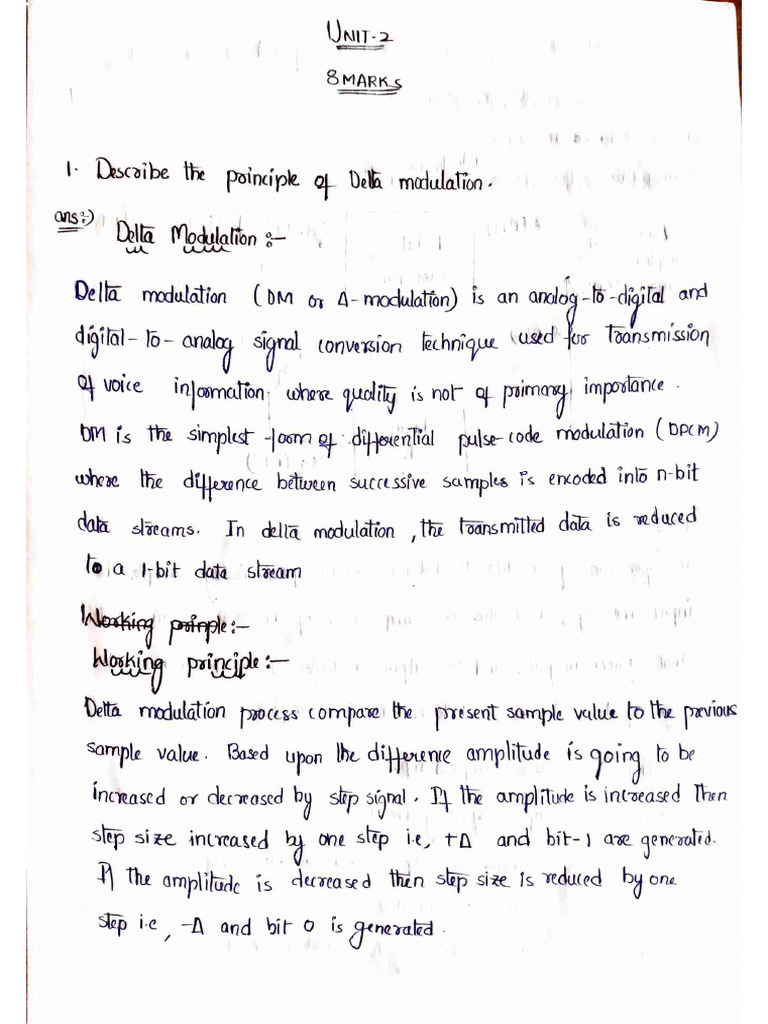 UNIT-2
8 MARKS
1. Describe the principle of Delta modulation.
ans:-)
Delta Modulation :-
Delta modulation (DM or Δ-modulation) is an analog-to-digital and
digital-to-analog signal conversion technique used for transmission
of voice information where quality is not of primary importance.
DM is the simplest form of differential pulse-code modulation (DPCM)
where the difference between successive samples is encoded into n-bit
data streams. In delta modulation, the transmitted data is reduced
to a 1-bit data stream
Working prinple:-
Working principle:-
Delta modulation process compare the present sample value to the previous
sample value. Based upon the difference amplitude is going to be
increased or decreased by step signal. If the amplitude is increased then
step size increased by one step i.e, +Δ and bit-1 are generated.
If the amplitude is decreased then step size is reduced by one
step i.e, -Δ and bit 0 is generated.